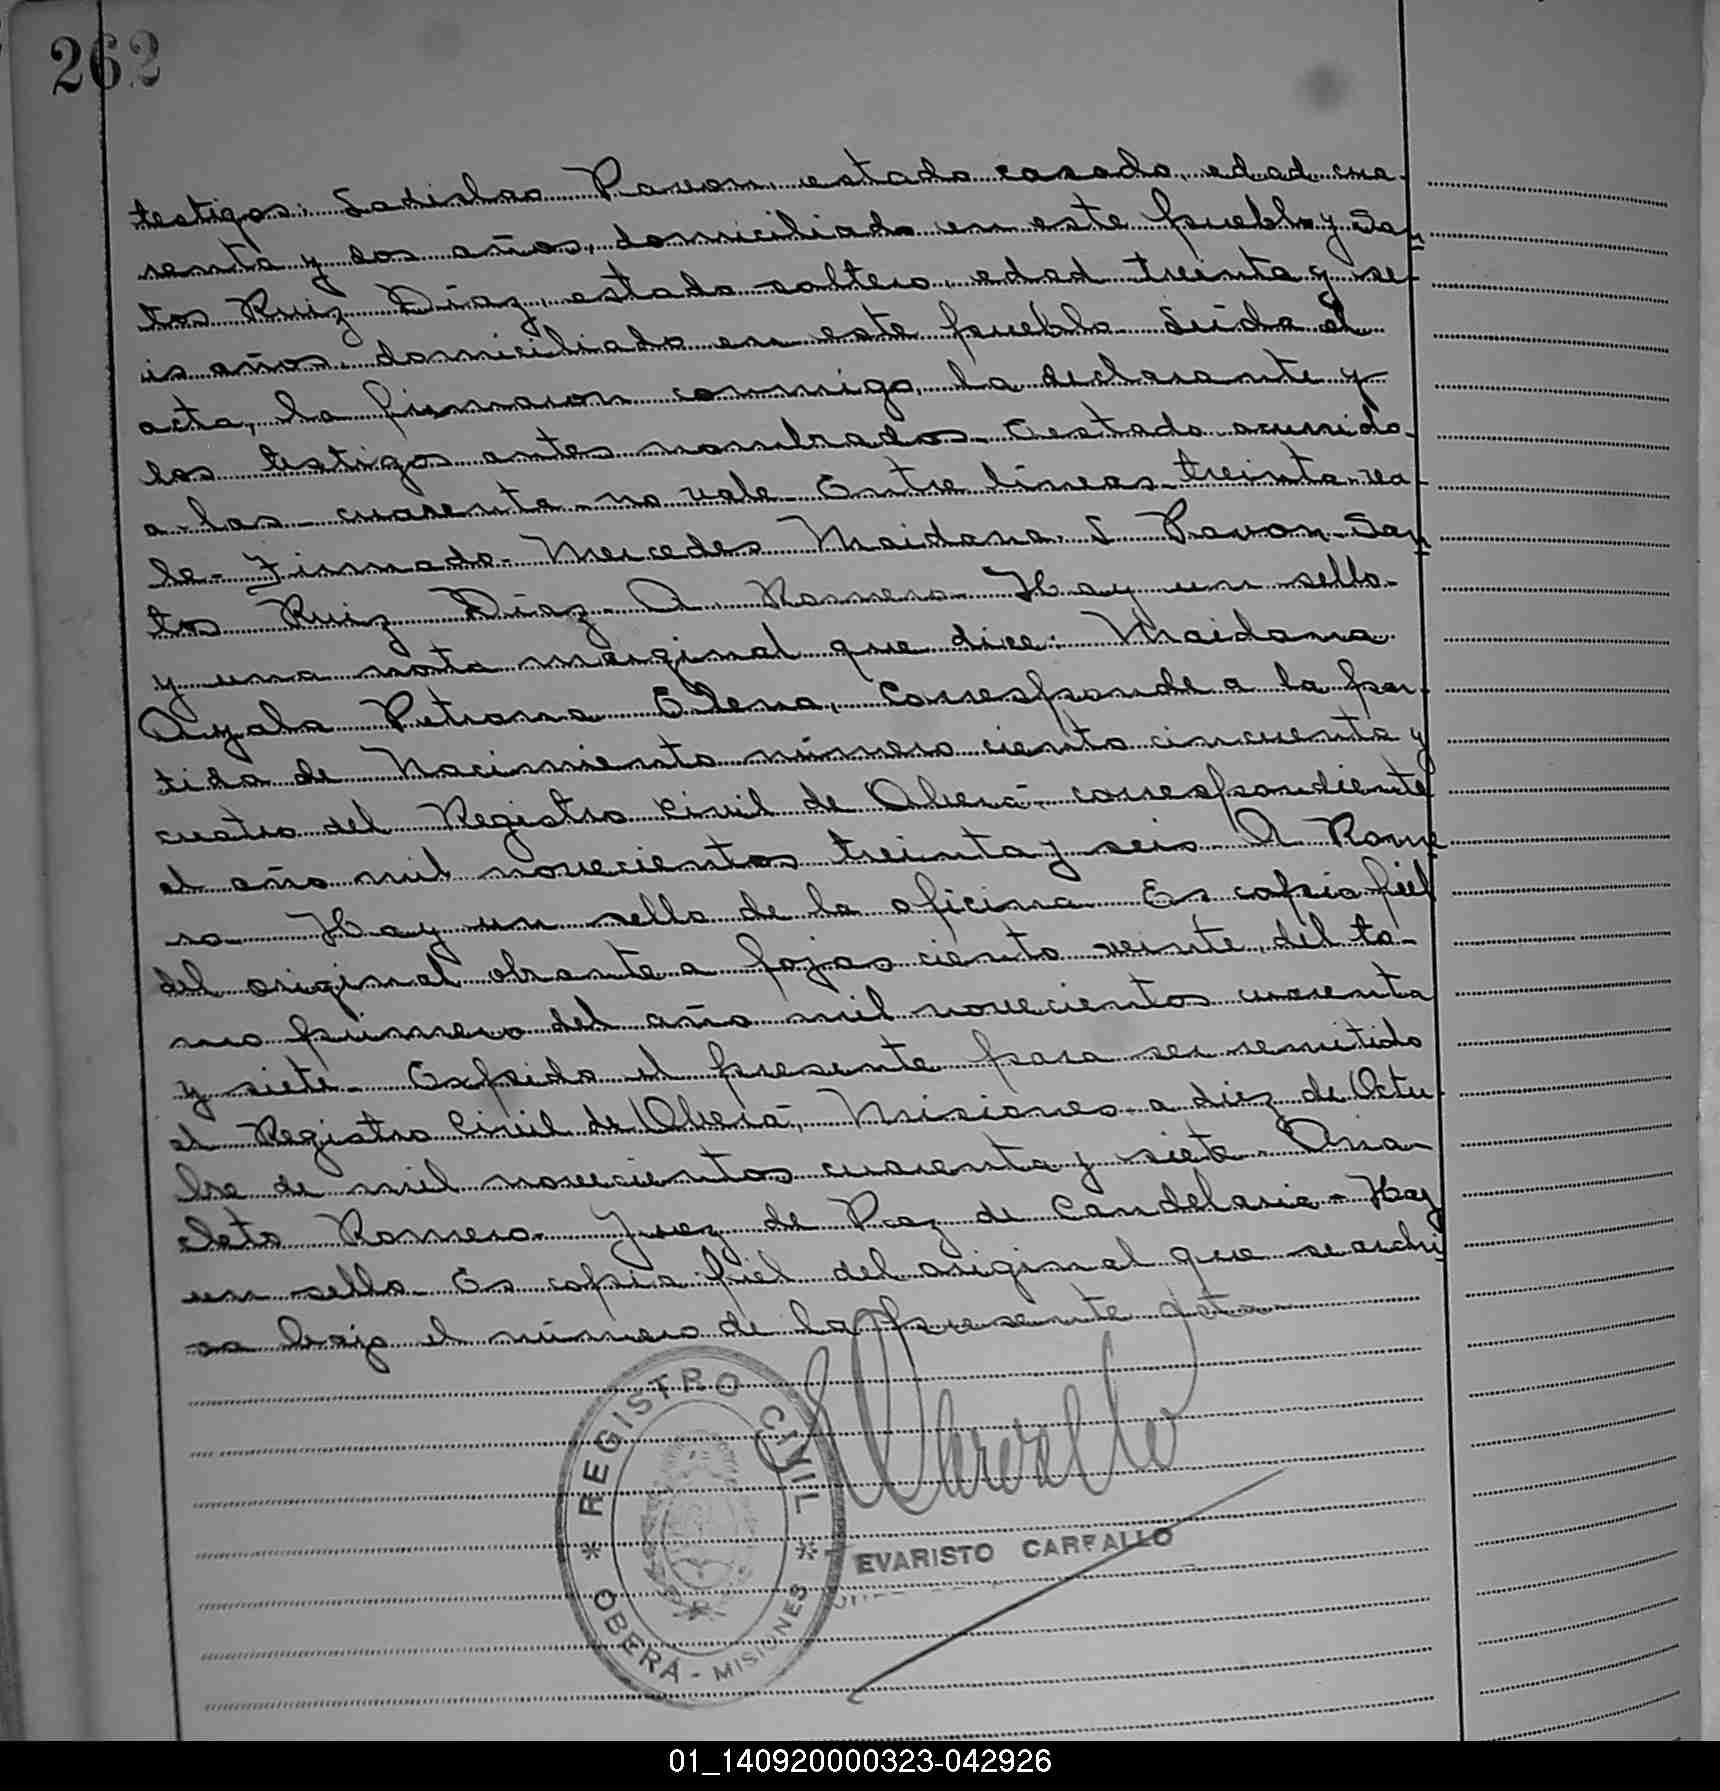 262
testigos: Ladislao Pavon, estado casado, edad cua-
renta y dos años, domiciliado en este pueblo y San
tos Ruiz Diaz, estado soltero, edad treinta y se-
is años, domiciliado en este pueblo Leida el
acta, la firmaron conmigo, la declarante y
los testigos antes nombrados. Testado ocurrido-
a-las-cuarenta-no vale. Entre lineas-treinta-va-
le-Firmado-Mercedes Maidana. L Pavon-San
tos Ruiz Diaz-A. Romero-Hay un sello-
y una nota marginal que dice: Maidana
Ayala Petrona Elena, Corresponde a la par-
tida de Nacimiento número ciento cincuenta y
cuatro del Registro Civil de Oberá-correspondiente
al año mil novecientos treinta y seis A Rome
ro Hay un sello de la oficina Es copia fiel
del original obrante a fojas ciento veinte, del to-
mo primero del año mil novecientos cuarenta
y siete- Expido el presente para ser remitido
al Registro Civil de Oberá, Misiones-a diez de Octu-
bre de mil novecientos cuarenta y siete- Ana-
cleto Romero-Juez de Paz de Candelaria-Hay
un sello-Es copia fiel del original que se archi
va bajo el número de la presente acta
REGISTRO CIVIL
OBERÁ - MISIONES
EVARISTO CARBALLO
01_140920000323-042926